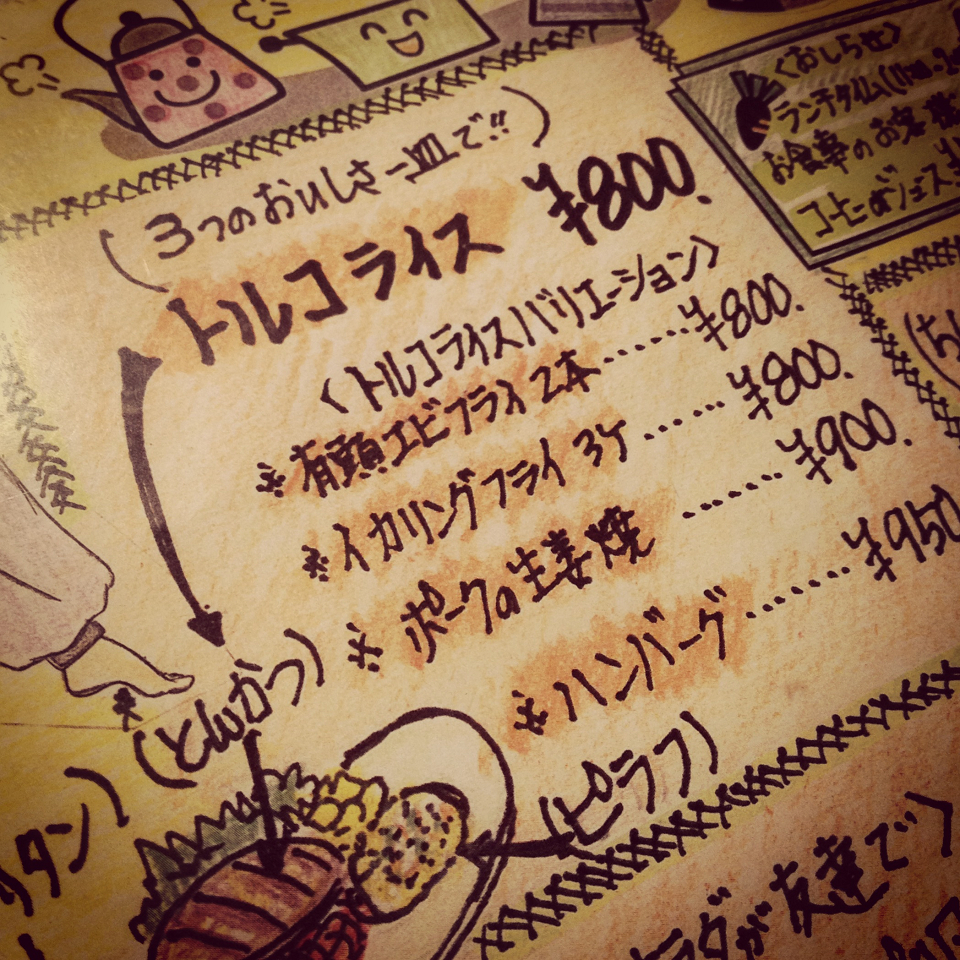 (3つのおいしさ一皿で!!)
トルコライス ¥800.
〈トルコライスバリエーション〉
※有頭エビフライ 2本……¥800.
※イカリングフライ 3ケ……¥800.
※ポークの生姜焼……¥900.
※ハンバーグ……¥950
(とんかつ)
(ピラフ)
〈おしらせ〉
ランチタイム
お食事のお客様
コーヒー
タン)
友達で)